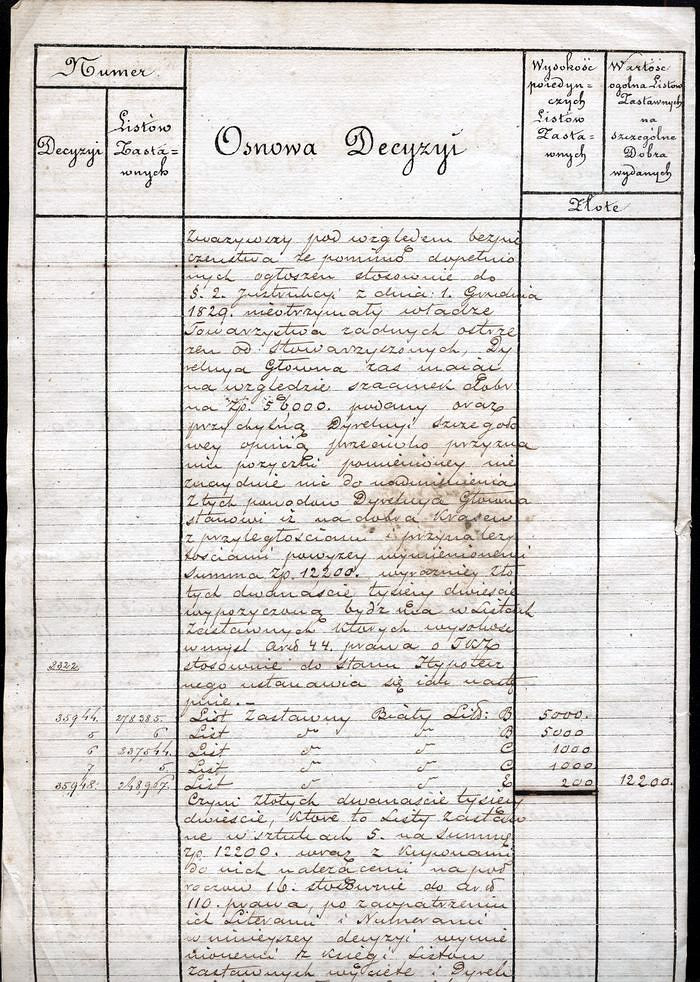 Numer
Decyzyi
Listów
Zasta=
wnych
Osnowa Decyzyi
Wysokość
poiedyn=
czych
Listów
Zasta=
wnych
Wartość
ogolna Listów
Zastawnych
na
szczególne
Dobra
wydanych
Złote
Zważywszy pod względem bezpie
czenstwa że pomimo dopełnio
nych ogłoszen stosownie do
§. 2. Instrukcyi z dnia 1. Grudnia
1829. nieotrzymały władze
Towarzystwa żadnych ostrze
żen od stowarzyszonych, Dy
rekcya Głowna zas maiąc
na względzie szacunek dobr
na Zp. 56000. podany oraz
przychylną Dyrekcyi szczegoło
wey opinią przeciwko przyzna
niu pozyczki pomienioney nie
znayduie nic do nadmienienia
Z tych powodow Dyrekcya Głowna
stanowi iż na dobra Krasew
z przyległościami i przynależy
tościami powyzey wymienionemi
summa Zp. 12200. wyrazniey Zło
tych dwanaście tysięcy dwieście
wypozyczoną bydz ma w Listach
Zastawnych ktorych wysokość
w mysl Art. 44. prawa o TKZ
2322 stosownie do stanu Hypotecz
nego ustanawia się iak nastę
pnie. -
35944. 278385. List Zastawny Biały Lit: B 5000.
5 6 List B 5000
6 237544. List C 1000
7 5. List C 1000
35948. 248967. List E 200 12200.
Czyni złotych dwanaście tysięcy
dwieście, ktore to Listy zastaw
ne w sztukach 5. na summę
Zp. 12200. wraz z kuponami
do nich należącemi na pół
roczow 16. stosownie do art.
110. prawa, po zaopatrzeniu
ich Literami i Numerami
w ninieyszey decyzyi wymie
nionemi z Księgi Listow
zastawnych wycięte i Dyrek